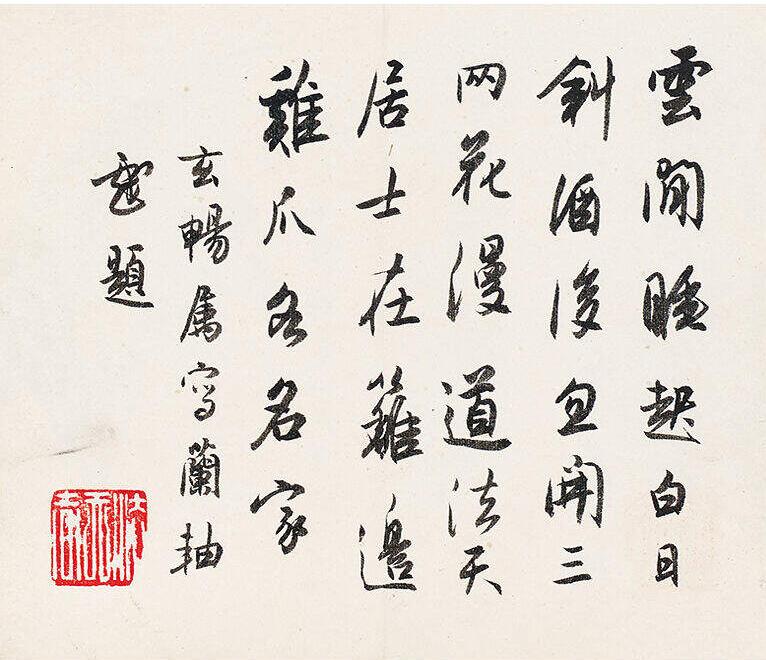 雲閒睡起白日
斜酒後忽開三
兩花漫道法天
居士在籬邊
雞爪各名家
玄暢屬寫蘭軸
題